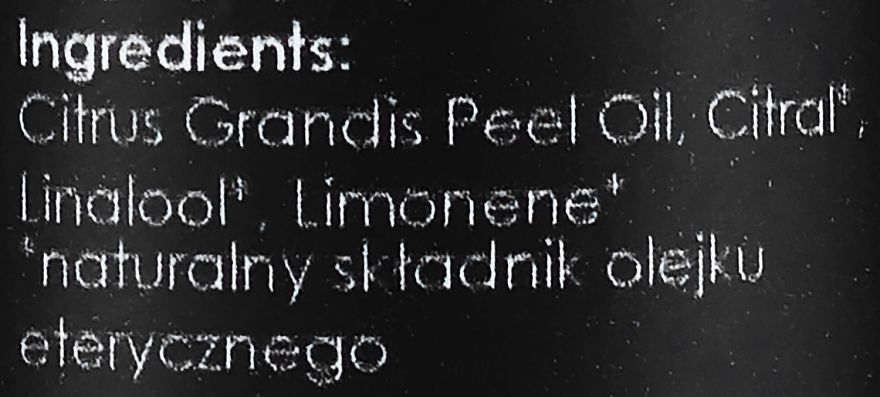 Ingredients:
Citrus Grandis Peel Oil, Citral*,
Linalool*, Limonene*
*naturalny składnik olejku
eterycznego